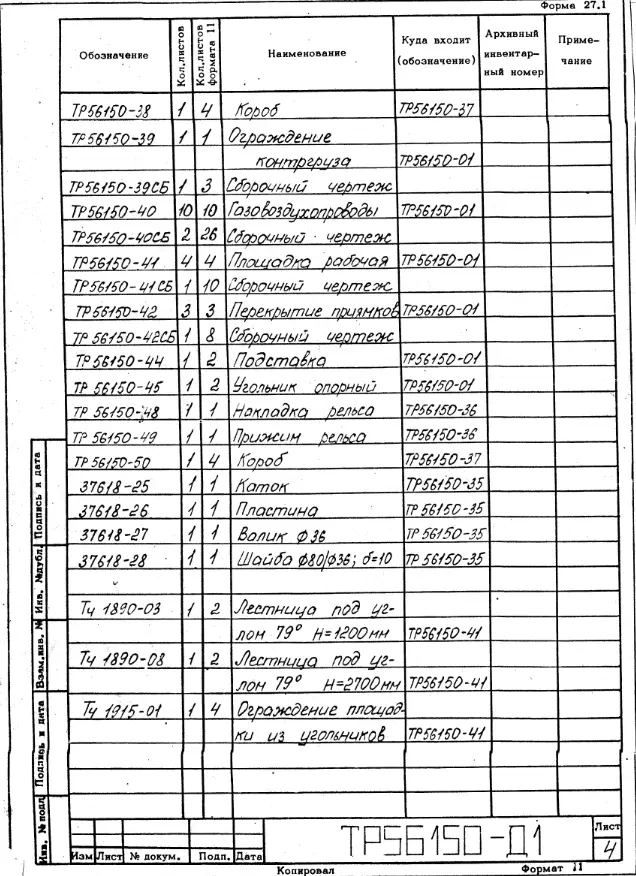 Форма 27.1
Обозначение Кол.листов Кол.листов формата 11 Наименование Куда входит (обозначение) Архивный инвентар- ный номер Приме- чание
ТР56150-38 1 4 Короб ТР56150-37
ТР56150-39 1 1 Ограждение
контргруза ТР56150-01
ТР56150-39СБ 1 3 Сборочный чертеж
ТР56150-40 10 10 Газовоздухопроводы ТР56150-01
ТР56150-40СБ 2 26 Сборочный чертеж
ТР56150-41 4 4 Площадка рабочая ТР56150-01
ТР56150-41СБ 1 10 Сборочный чертеж
ТР56150-42 3 3 Перекрытие приямков ТР56150-01
ТР 56150-42СБ 1 8 Сборочный чертеж
ТР56150-44 1 2 Подставка ТР56150-01
ТР 56150-45 1 2 Угольник опорный ТР56150-01
ТР 56150-48 1 1 Накладка рельса ТР56150-36
ТР 56150-49 1 1 Прижим рельса ТР56150-36
ТР 56150-50 1 4 Короб ТР56150-37
37618-25 1 1 Каток ТР56150-35
37618-26 1 1 Пластина ТР 56150-35
37618-27 1 1 Валик ф36 ТР 56150-35
37618-28 1 1 Шайба ф80/ф36; δ=10 ТР 56150-35
Тч 1890-03 1 2 Лестница под уг-
лом 79° Н=1200мм ТР56150-41
Тч 1890-08 1 2 Лестница под уг-
лом 79° Н=2700мм ТР56150-41
Тч 1915-01 1 4 Ограждение площад-
ки из угольников ТР56150-41
Подпись и дата
Инв. №дубл.
Взам.инв. №
Подпись и дата
Инв. №подл
Изм Лист № докум. Подп. Дата
ТР56150-Д1
Лист
4
Копировал Формат 11